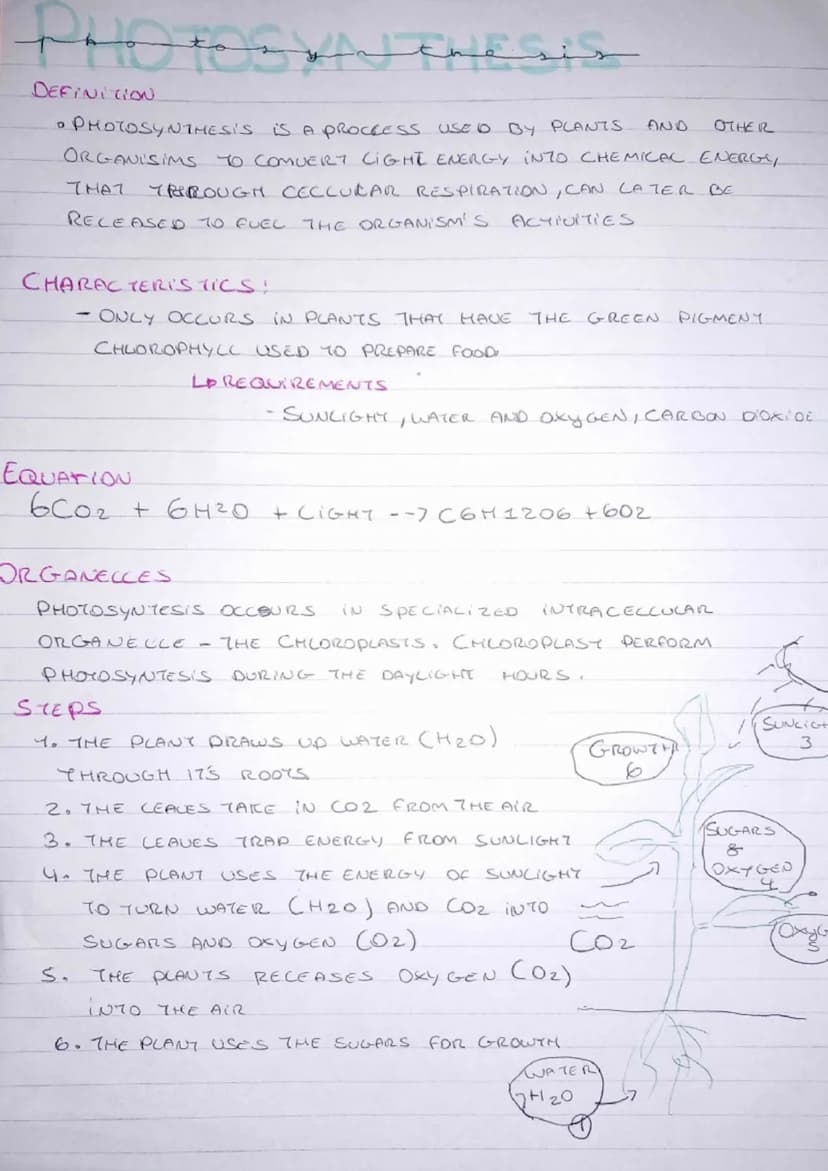 PHOTOSYNTHESIS
photosynthesis
DEFINITION
• PHOTOSYNTHESIS IS A PROCCESS USED BY PLANTS AND OTHER
ORGANISIMS TO CONVERT LIGHT ENERGY INTO CHEMICAL ENERGY,
THAT THROUGH CELLULAR RESPIRATION, CAN LATER BE
RELEASED TO FUEL THE ORGANISM'S ACTIVITIES
CHARACTERISTICS:
- ONLY OCCURS IN PLANTS THAT HAVE THE GREEN PIGMENT
CHLOROPHYLL USED TO PREPARE FOOD
↳ REQUIREMENTS
- SUNLIGHT, WATER AND OXYGEN, CARBON DIOXIDE
EQUATION
6CO2 + 6H2O + LIGHT --> C6H12O6 + 6O2
ORGANELLES
PHOTOSYNTESIS OCCOURS IN SPECIALIZED INTRACELLULAR
ORGANELLE - THE CHLOROPLASTS. CHLOROPLAST PERFORM
PHOTOSYNTESIS DURING THE DAYLIGHT HOURS.
STEPS
1. THE PLANT DRAWS UP WATER (H2O)
THROUGH IT'S ROOTS
2. THE LEAVES TAKE IN CO2 FROM THE AIR
3. THE LEAVES TRAP ENERGY FROM SUNLIGHT
4. THE PLANT USES THE ENERGY OF SUNLIGHT
TO TURN WATER (H2O) AND CO2 INTO
SUGARS AND OXYGEN (O2)
5. THE PLANTS RELEASES OXYGEN (O2)
INTO THE AIR
6. THE PLANT USES THE SUGARS FOR GROWTH
SUNLIGH
3
GROWTH
6
SUGARS
&
OXYGEN
4
OXYG
5
CO2
WATER
H2O
1